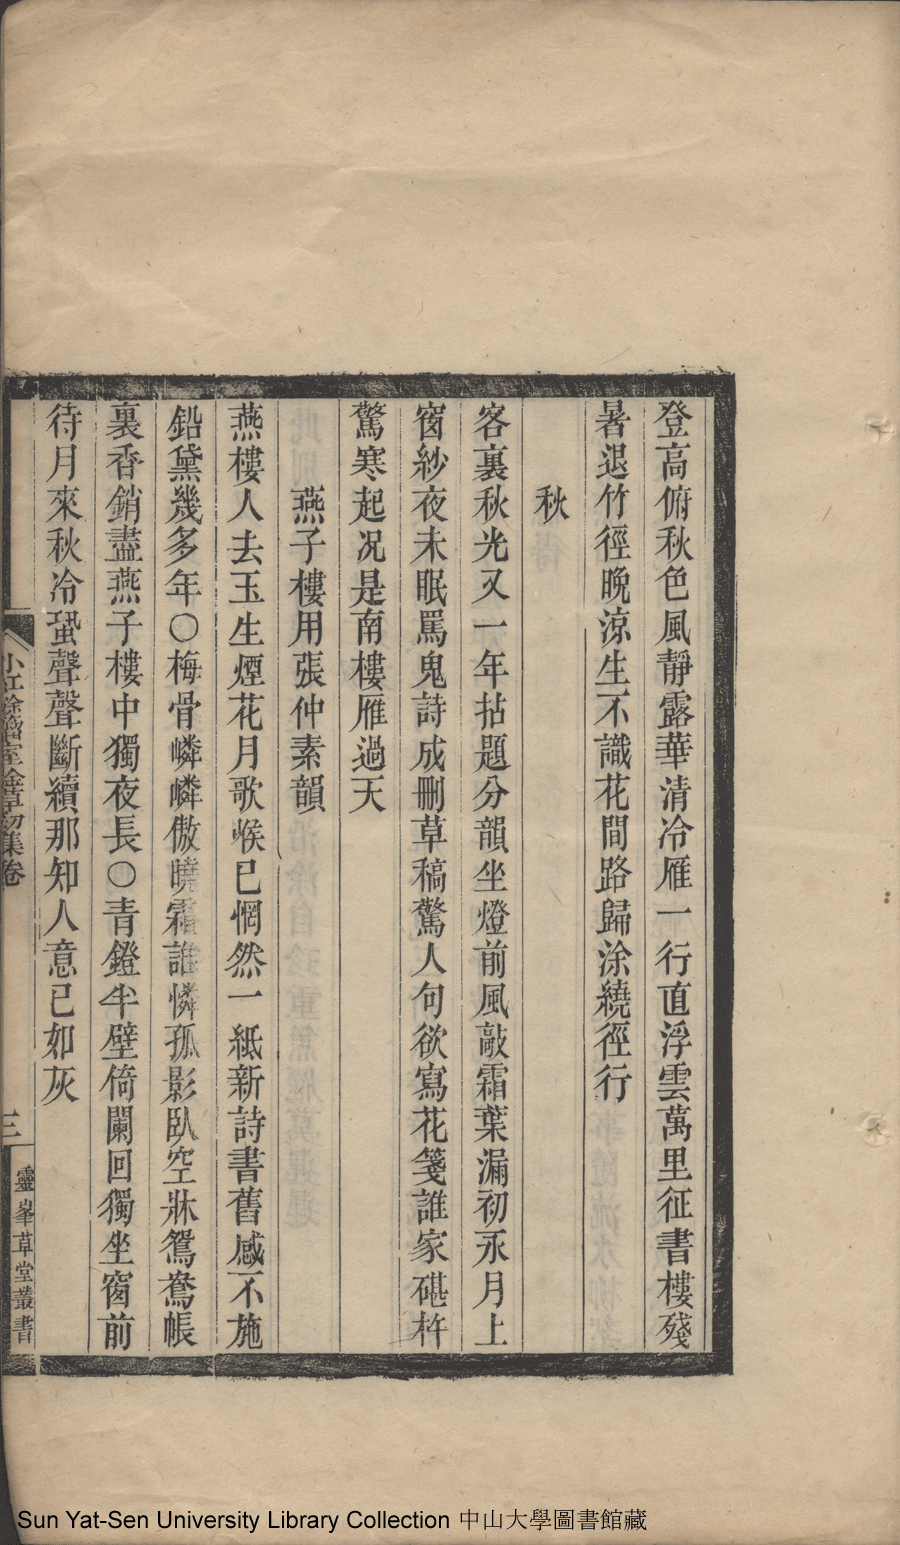 登高俯秋色風靜露華清冷雁一行直浮雲萬里征書樓殘
暑退竹徑晚涼生不識花間路歸涂繞徑行
秋
客裏秋光又一年拈題分韻坐燈前風敲霜葉漏初永月上
窗紗夜未眠罵鬼詩成刪草稿驚人句欲寫花箋誰家碪杵
驚寒起况是南樓雁過天
燕子樓用張仲素韻
燕樓人去玉生煙花月歌喉已惘然一紙新詩書舊感不施
鉛黛幾多年〇梅骨嶙嶙傲曉霜誰憐孤影臥空牀鴛鴦帳
裏香銷盡燕子樓中獨夜長〇青鐙半壁倚闌回獨坐窗前
待月來秋冷蛩聲聲斷續那知人意已如灰
初集卷
三
靈峯草堂叢書
Sun Yat-Sen University Library Collection 中山大學圖書館藏